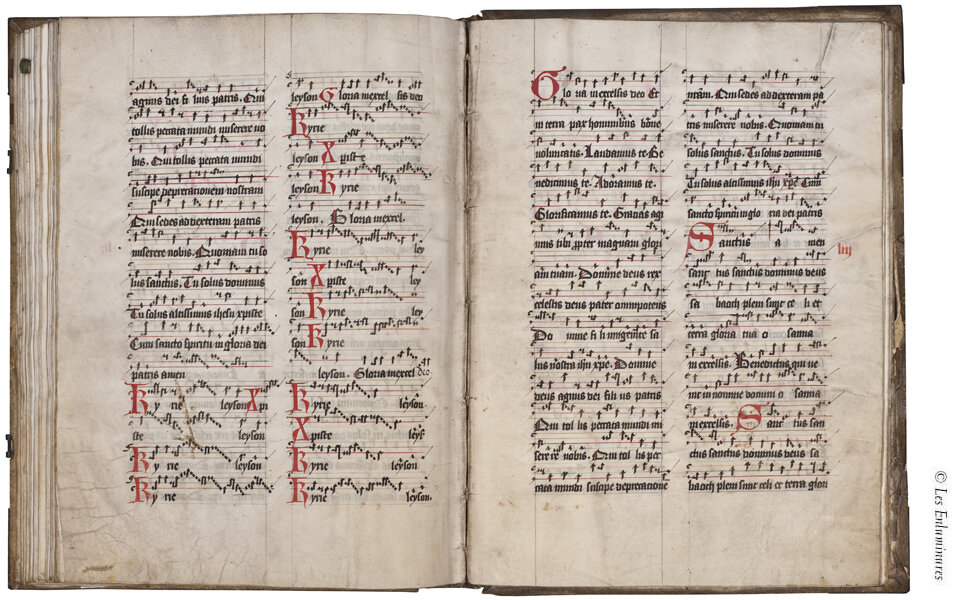 agnus dei fi lius patris. Qui
tollis peccata mundi miserere no
bis. Qui tollis peccata mundi
suscipe deprecationem nostram
Qui sedes ad dexteram patris
miserere nobis. Quoniam tu so
lus sanctus. Tu solus dominus
Tu solus altissimus ihesu xpiste
Cum sancto spiritu in gloria dei
patris amen
Ky rie leyson Xpi
ste leyson
Ky rie leyson
Ky rie
leyson Gloria in excel sis deo
Kyrie
leyson Xpiste
leyson Kyrie
leyson. Gloria in excel.
Kyrie ley
son Xpiste ley
son Kyrie ley
son Kyrie
leyson. Gloria in excel deo
Kyrie leyson.
Xpiste leyß
Kyrie leyson.
Kyrie leyson.
Glo ria in excelsis deo Et
in terra pax hominibus bone
voluntatis. Laudamus te. Be
nedicimus te. Adoramus te.
Glorificamus te. Gratias agi
mus tibi ppter magnam glori
am tuam. Domine deus rex
celestis deus pater omnipotens
Do mine fi li unigenite
ihu xpe. Domine
deus agnus dei fili us patris
Qui tol lis peccata mundi mi
serere nobis. Qui tol lis pec
cata mundi suscipe deprecatione
nram. Qui sedes ad dexteram pa
tris miserere nobis. Quoniam tu
solus sanctus. Tu solus dominus
Tu solus altissimus ihu xpe Cum
sancto spiritu in glo ria dei patris
Sanctus a men
sanc tus sanctus dominus deus
sa baoth pleni sunt ce li et
terra gloria tua o sanna
in excelsis. Benedictus qui ve
nit in nomine domini o sanna
in excelsis. Sanc tus san
ctus sanctus dominus deus sa
baoth pleni sunt celi et terra glori
liij
© Les Enluminures